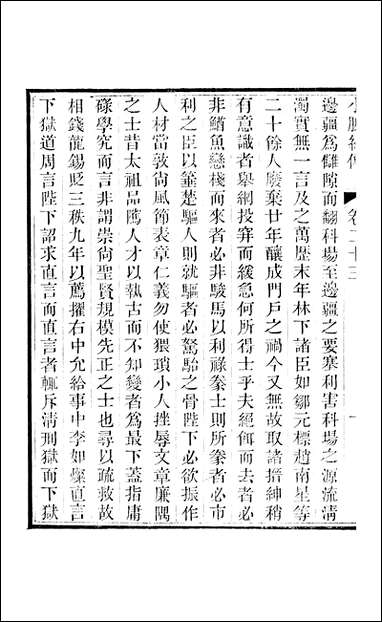 小腆紀傳 卷二十三 一
邊疆爲讎隙而翻科場至邊疆之要塞利害科場之源流淸
濁實無一言及之萬歷末年林下諸臣如鄒元標趙南星等
二十餘人廢棄廿年釀成門戶之禍今又無故取諸搢紳稍
有意識者舉網投穽而緩急何所得士乎夫絕餌而去者必
非鰌魚戀棧而來者必非駿馬以利祿豢士則所豢者必市
利之臣以箠楚驅人則就驅者必駑駘之骨陛下必欲振作
人材當敦尚風節表章仁義勿使猥瑣小人挫辱文章廉隅
之士昔太祖品隲人才以執古而不知變者爲最下蓋指庸
碌學究而言非謂崇尚聖賢規模先正之士也尋以疏救故
相錢龍錫貶三秩九年以薦擢右中允給事中李如燦直言
下獄道周言陛下詔求直言而直言者輒斥淸刑獄而下獄